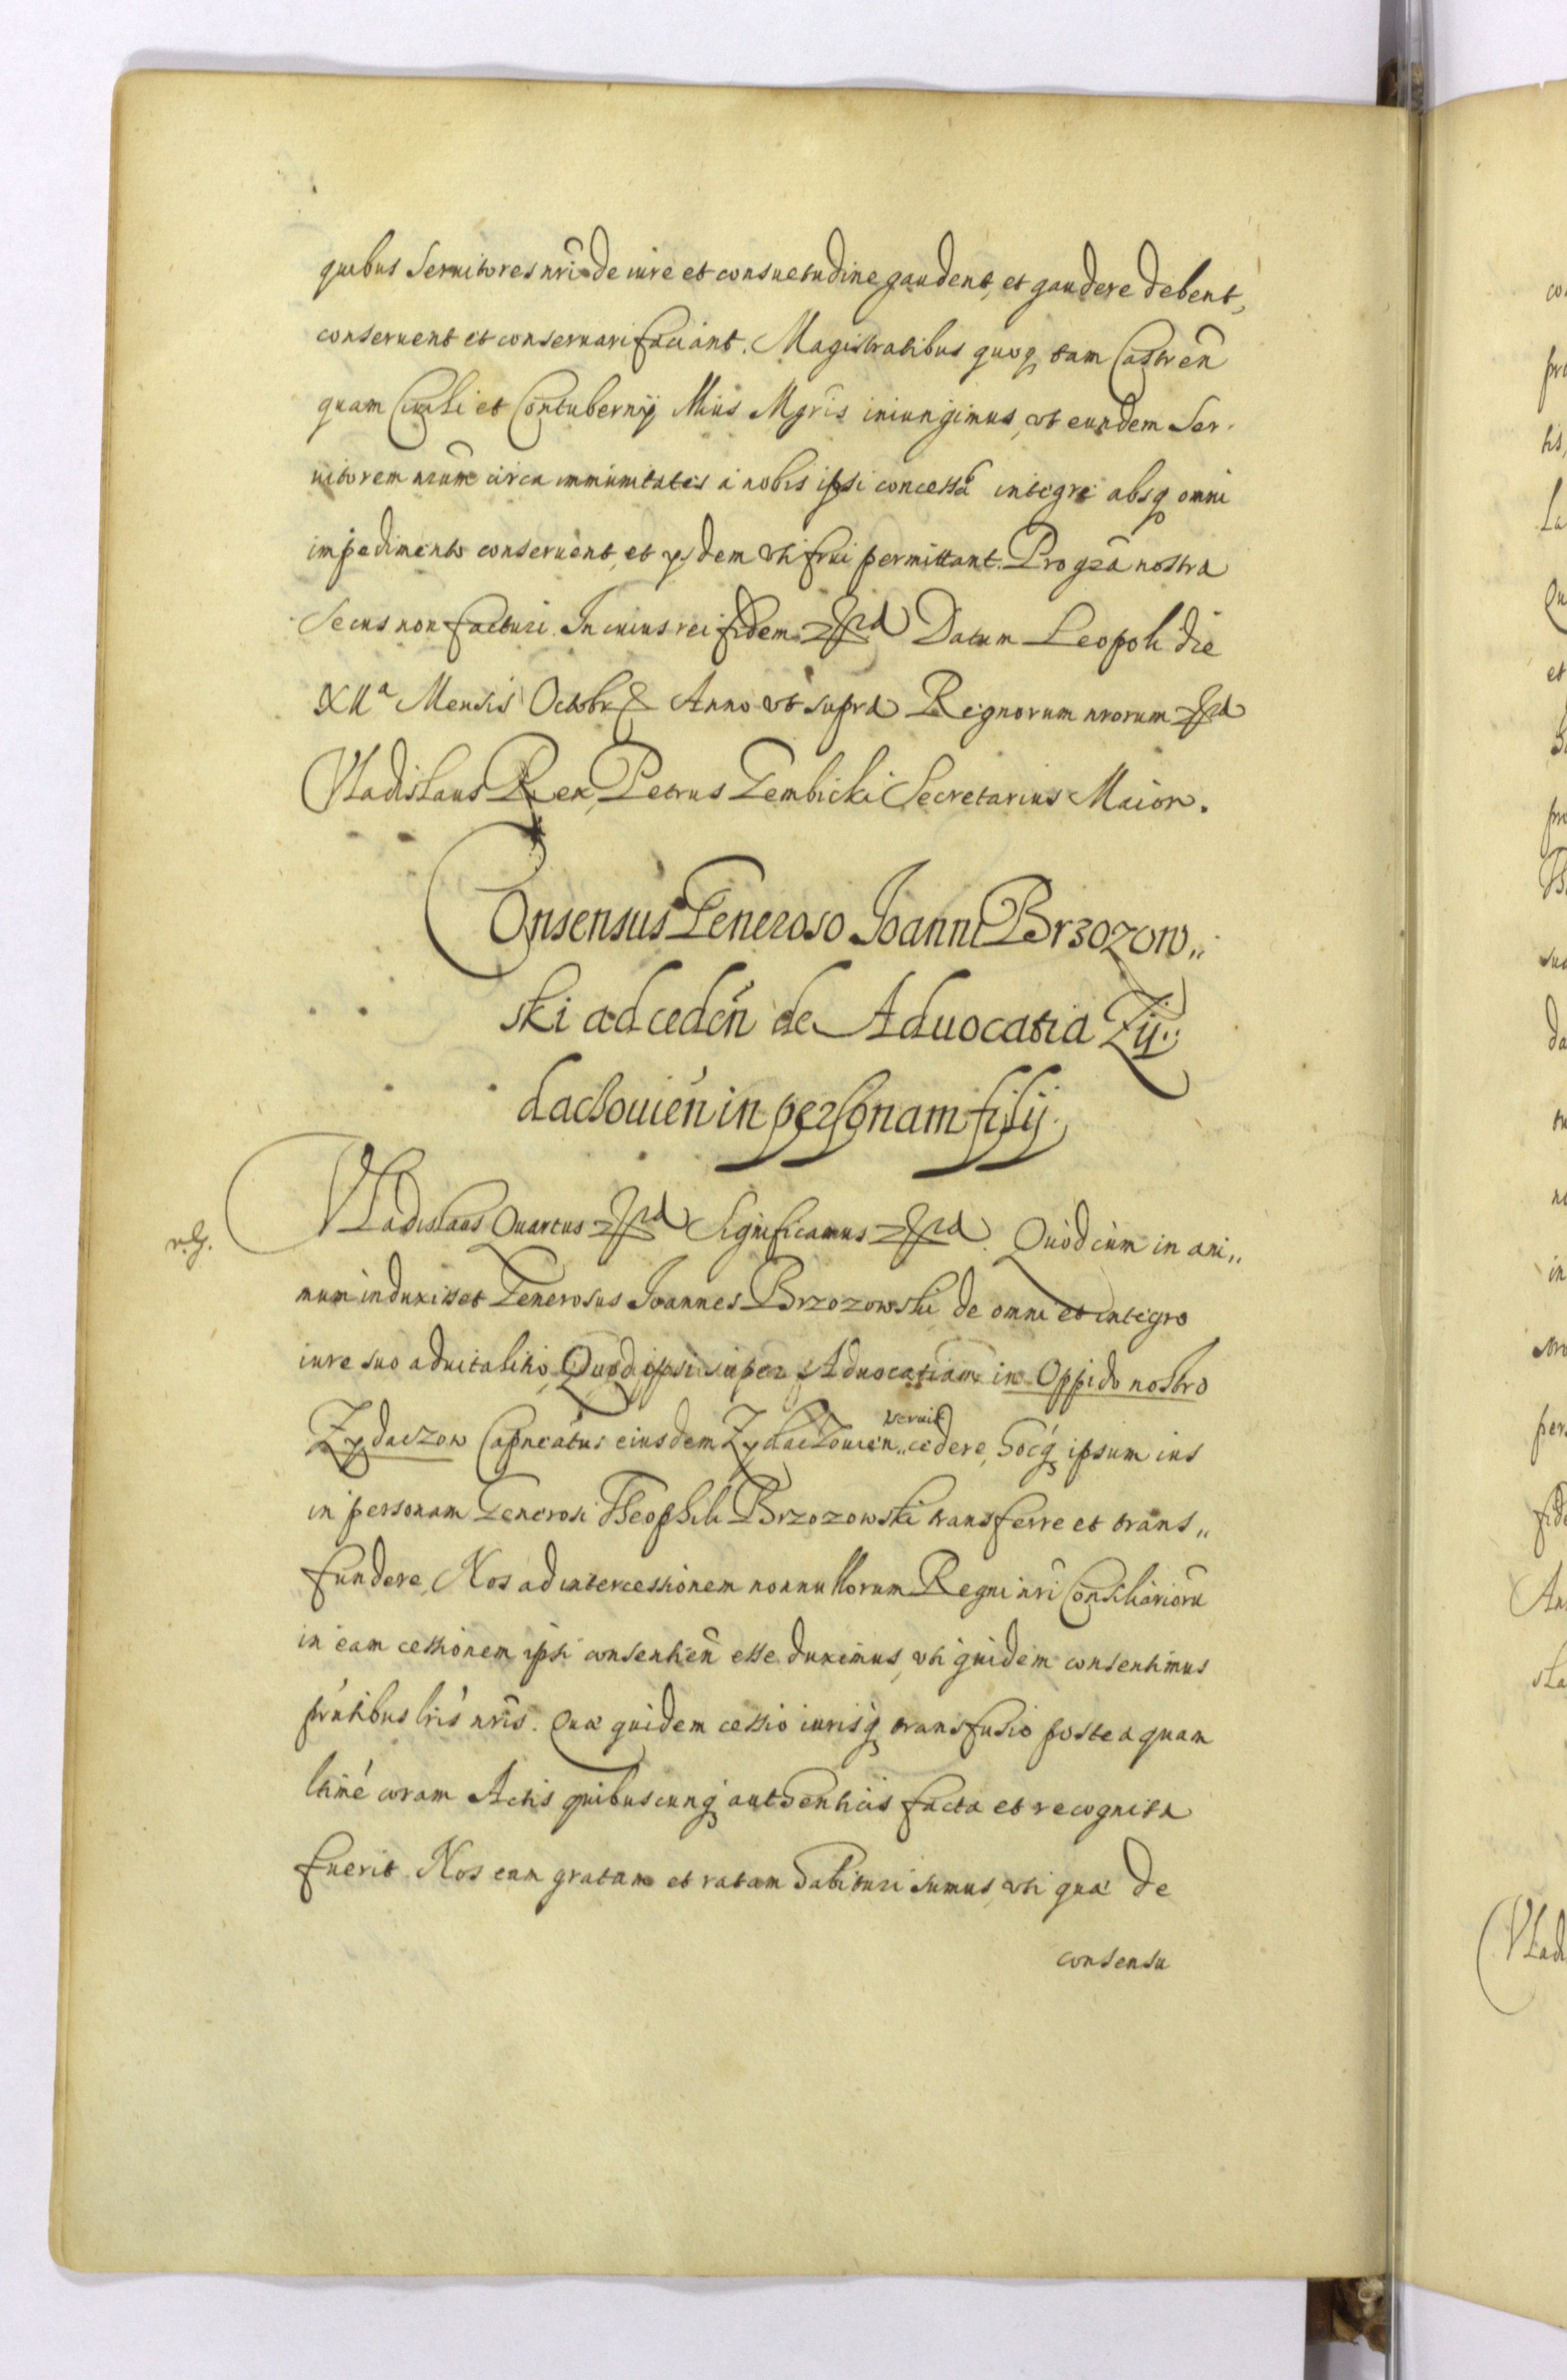 quibus Seruitores nrĩ de iure et consuetudine gaudent, et gaudere debent,
conseruent et conseruari faciant. Magistratibus quoq tam Castren̄
quam Ciuili et Contubernij Mius Mgris iniungimus, vt eundem Ser-
uitorem nrum circa immunitates a nobis ipsi concessa integre absq omni
impedimento conseruent, et ysdem vti frui permittant. Pro gra nostra
Secus non facturi. In cuius rei fidem Datum Leopoli die
XIIa Mensis Octobr Anno vt supra Regnorum nrorum
Vladislaus Rex, Petrus Gembicki Secretarius Maior.
Consensus Generoso Joanni Brzozow„
ski ad ceden̄ de Aduocatia Zÿ„
dachouien̄ in personam filij.
r. g.
Vladislaus Quartus Significamus Quod cum in ani„
mum induxisset Generosus Joannes Brzozowski de omni et integro
iure suo aduitalitio, Quod ipsi super Aduocatiam in Oppido nostro
Zydaczow Capneatus eiusdem Zydaczouien̄„ cedere, hocq ipsum ius
in personam Generosi Theophili Brzozowski transferre et trans„
fundere, Nos ad intercessionem nonnullorum Regni nrĩ Consiliarioru
in eam cessionem ipsi consentien̄ esse duximus, vti quidem consentimus
prntibus lris nris. Qua quidem cessio iurisq transfusio posteaquam
ltime coram Actis quibuscunq authenticis facta et recognita
fuerit. Nos eam gratam et ratam habituri sumus, vti qua de
consensu